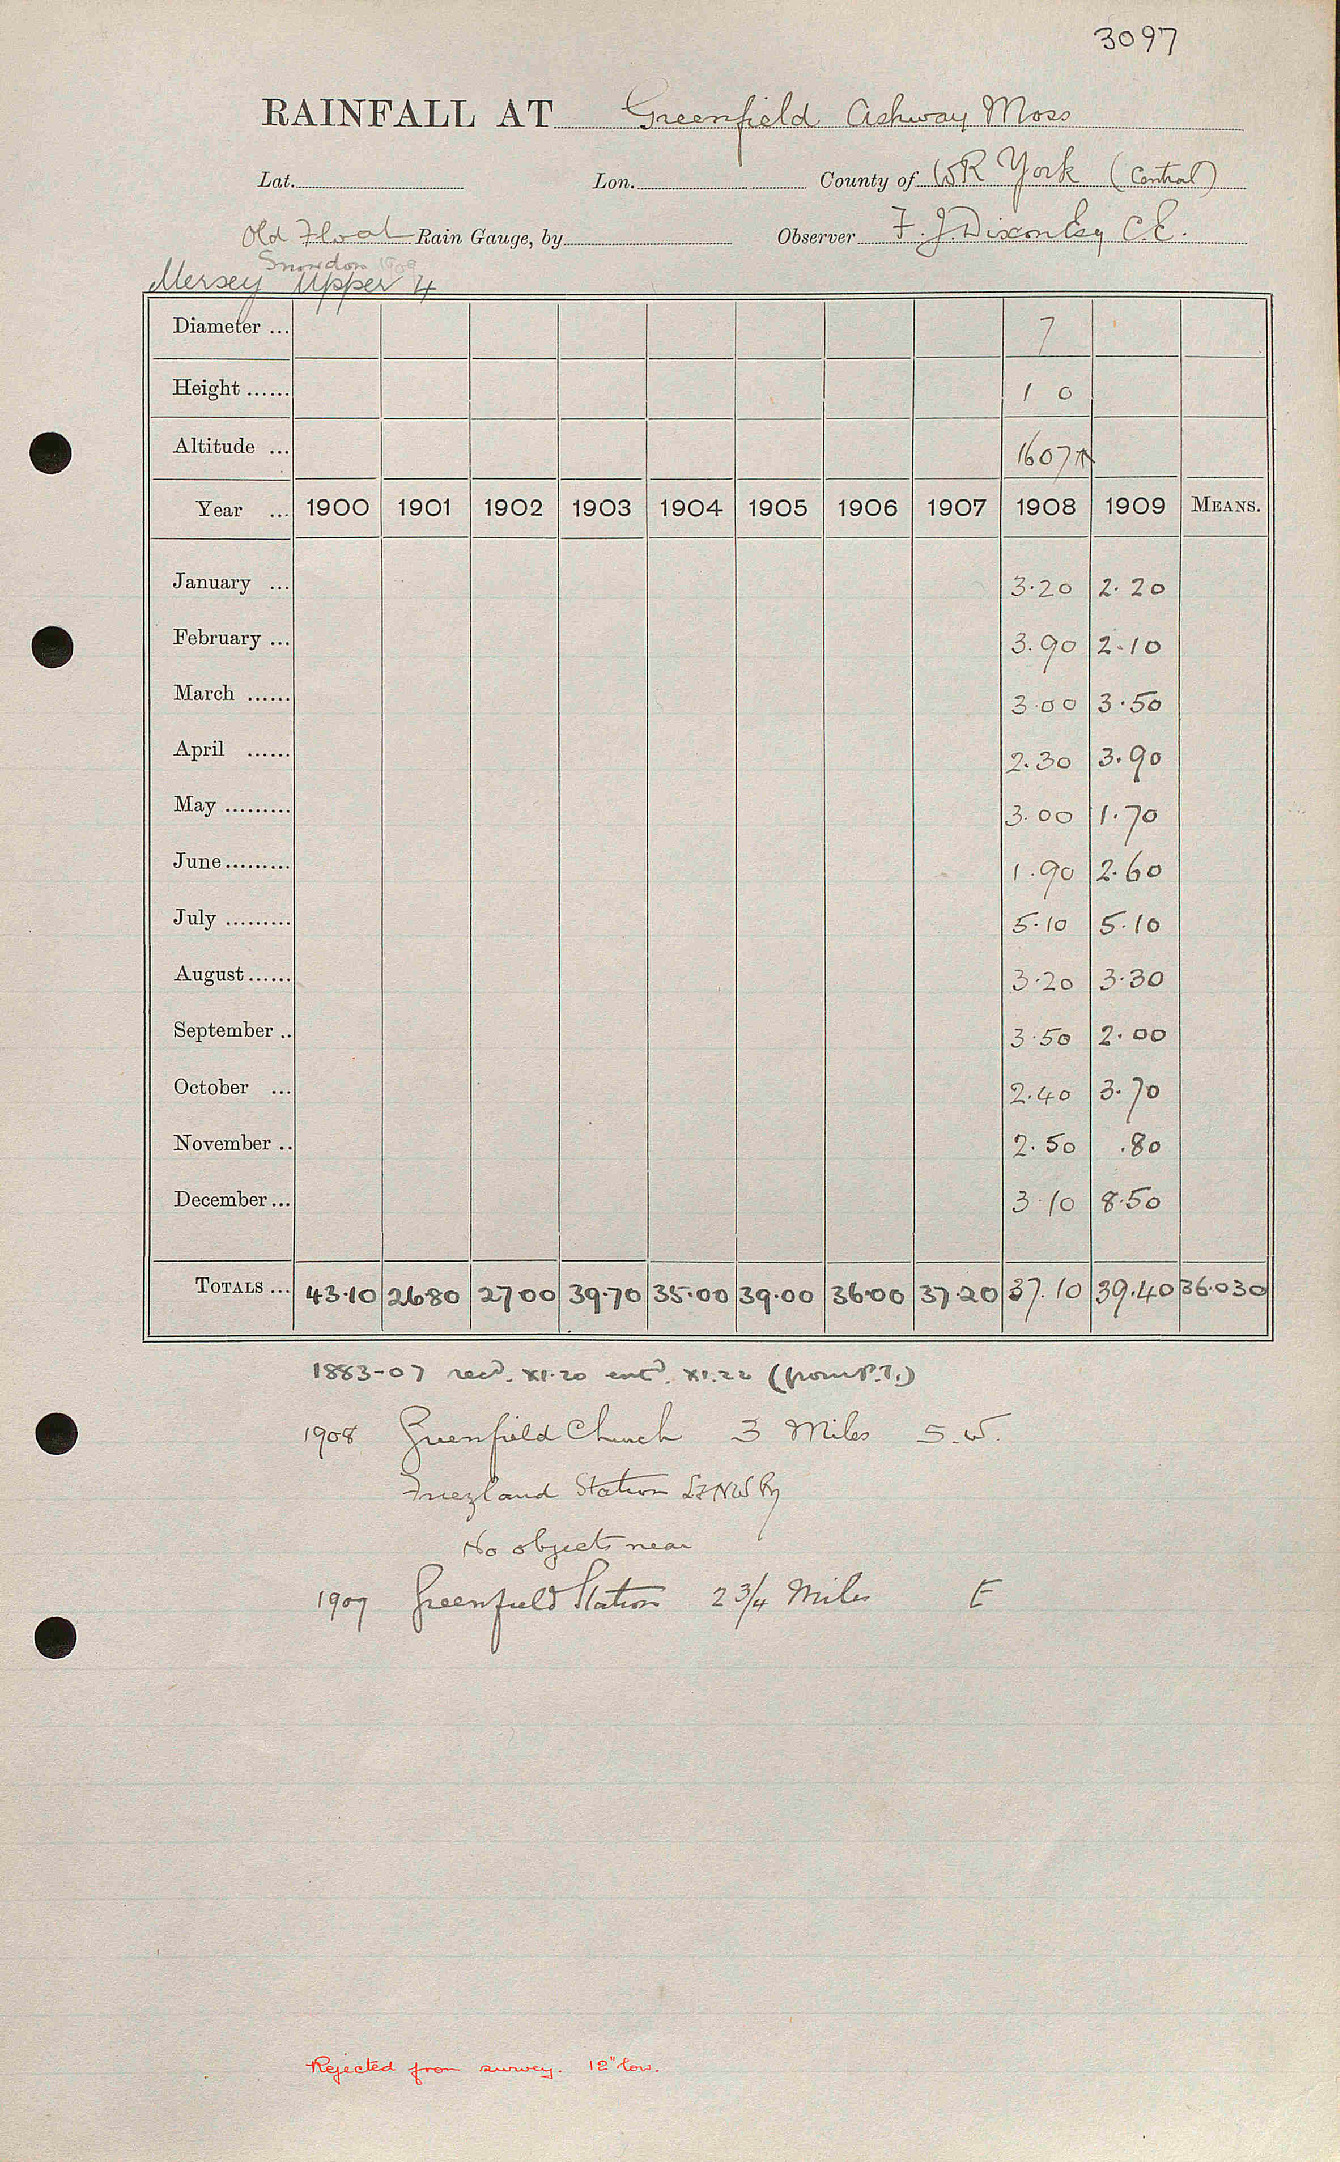 3097
RAINFALL AT Greenfield Ashway Moss
Lat. Lon. County of WR York (Central)
Old Float Rain Gauge, by Observer F. J. Dixon Esq C.E.
Snowdon 1908
Mersey Upper 4
Diameter ... 7
Height ...... 1 0
Altitude ... 1607
Year ... 1900 1901 1902 1903 1904 1905 1906 1907 1908 1909 MEANS.
January ... 3.20 2.20
February ... 3.90 2.10
March ...... 3.00 3.50
April ...... 2.30 3.90
May ......... 3.00 1.70
June ......... 1.90 2.60
July ......... 5.10 5.10
August ...... 3.20 3.30
September .. 3.50 2.00
October ... 2.40 3.70
November .. 2.50 .80
December ... 3.10 8.50
TOTALS ... 43.10 26.80 27.00 39.70 35.00 39.00 36.00 37.20 37.10 39.40 36.030
1883-07 recd. XI.20 entd. XI.22 (from P.T.)
1908 Greenfield Church 3 Miles S.W.
Friezland Station L&NW Ry
No objects near
1909 Greenfield Station 2 3/4 Miles E
Rejected from survey. 12" low.